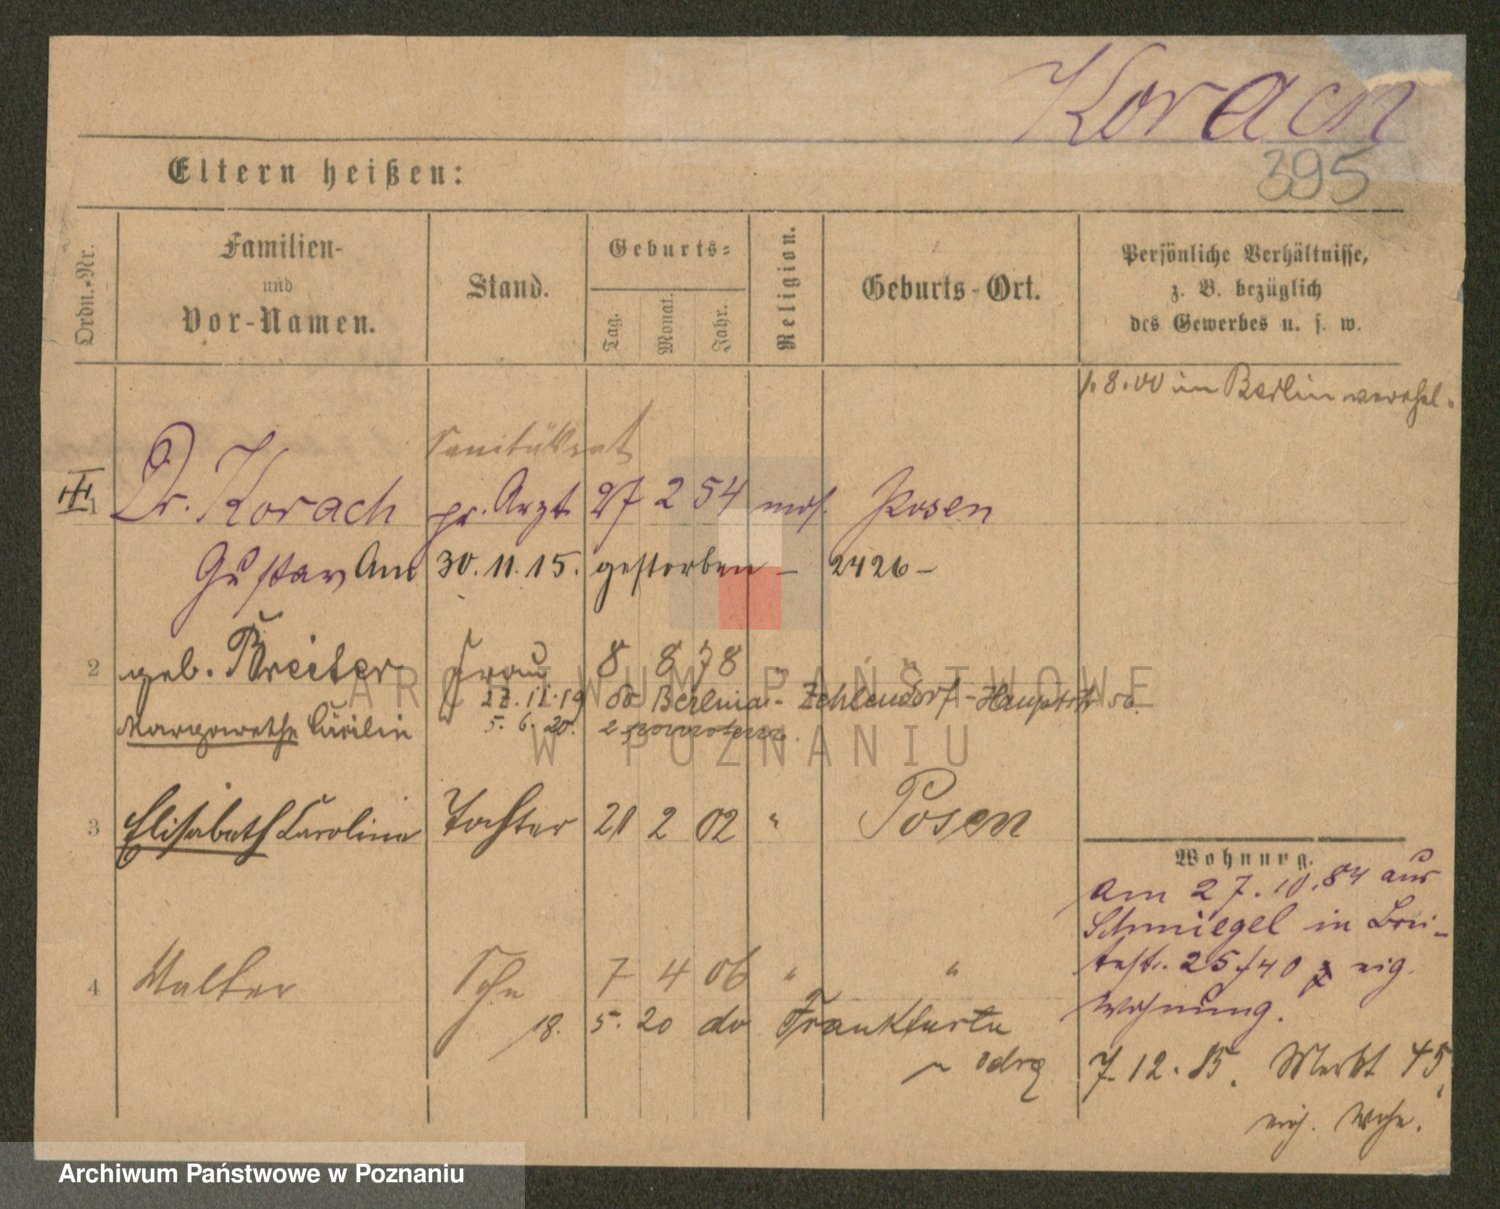 Korach
395
Eltern heißen:
Ordn.-Nr.
Familien-
und
Vor-Namen.
Stand.
Geburts-
Tag.
Monat.
Jahr.
Religion.
Geburts-Ort.
Persönliche Verhältnisse,
z. B. bezüglich
des Gewerbes u. s. w.
1. 8. 00 in Berlin verehel.
Sanitätsrat
1 Dr. Korach pr. Arzt 27 2 54 mos. Posen
Gustav Am 30. 11. 15. gestorben – 2426 –
2 geb. Breiter Frau 8 8 78 "
22. 11. 19 do Berlin - Zehlendorf - Hauptstr 50
Margarethe Cäcilie 5. 6. 20. z powrotem.
3 Elisabeth Caroline Tochter 21 2 02 " Posen
Wohnung.
Am 27. 10. 84 aus
Schmiegel in Brei-
testr. 25/40 eig.
Wohnung.
4 Walter Sohn 7 4 06 " "
18. 5. 20 do Frankfurtu
n Odrą
7. 12. 85. Markt 45,
eig. Wohn.
ARCHIWUM PAŃSTWOWE
W POZNANIU
Archiwum Państwowe w Poznaniu